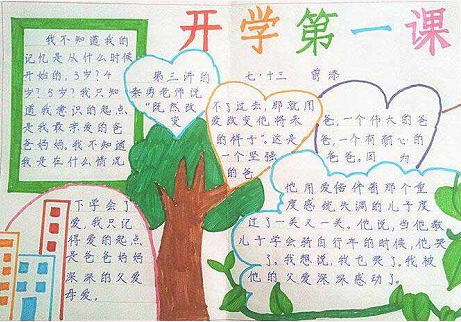 开学第一课
我不知道我的
记忆是从什么时候
开始的，3岁？4
岁？5岁？我只知
道我意识的起点
是我最亲爱的爸
爸妈妈，我不知道
我是在什么情况
下学会了
爱，我只记
得爱的起点
是爸爸妈妈
深深的父爱
母爱。
第三讲的
秦勇老师说
"既然改
变
不了过去，那就用
爱改变他将来
的样子"。这是
一个坚强
的爸
爸，一个伟大的爸
爸，一个有耐心的
爸爸。因 为
他用爱陪伴着那个重
度感统失调的儿子度
过了一关又一关，他说，当他教
儿子学会骑自行车的时候，他哭
了。我想说，我也哭了。我被
他的父爱深深感动了。
七·十三